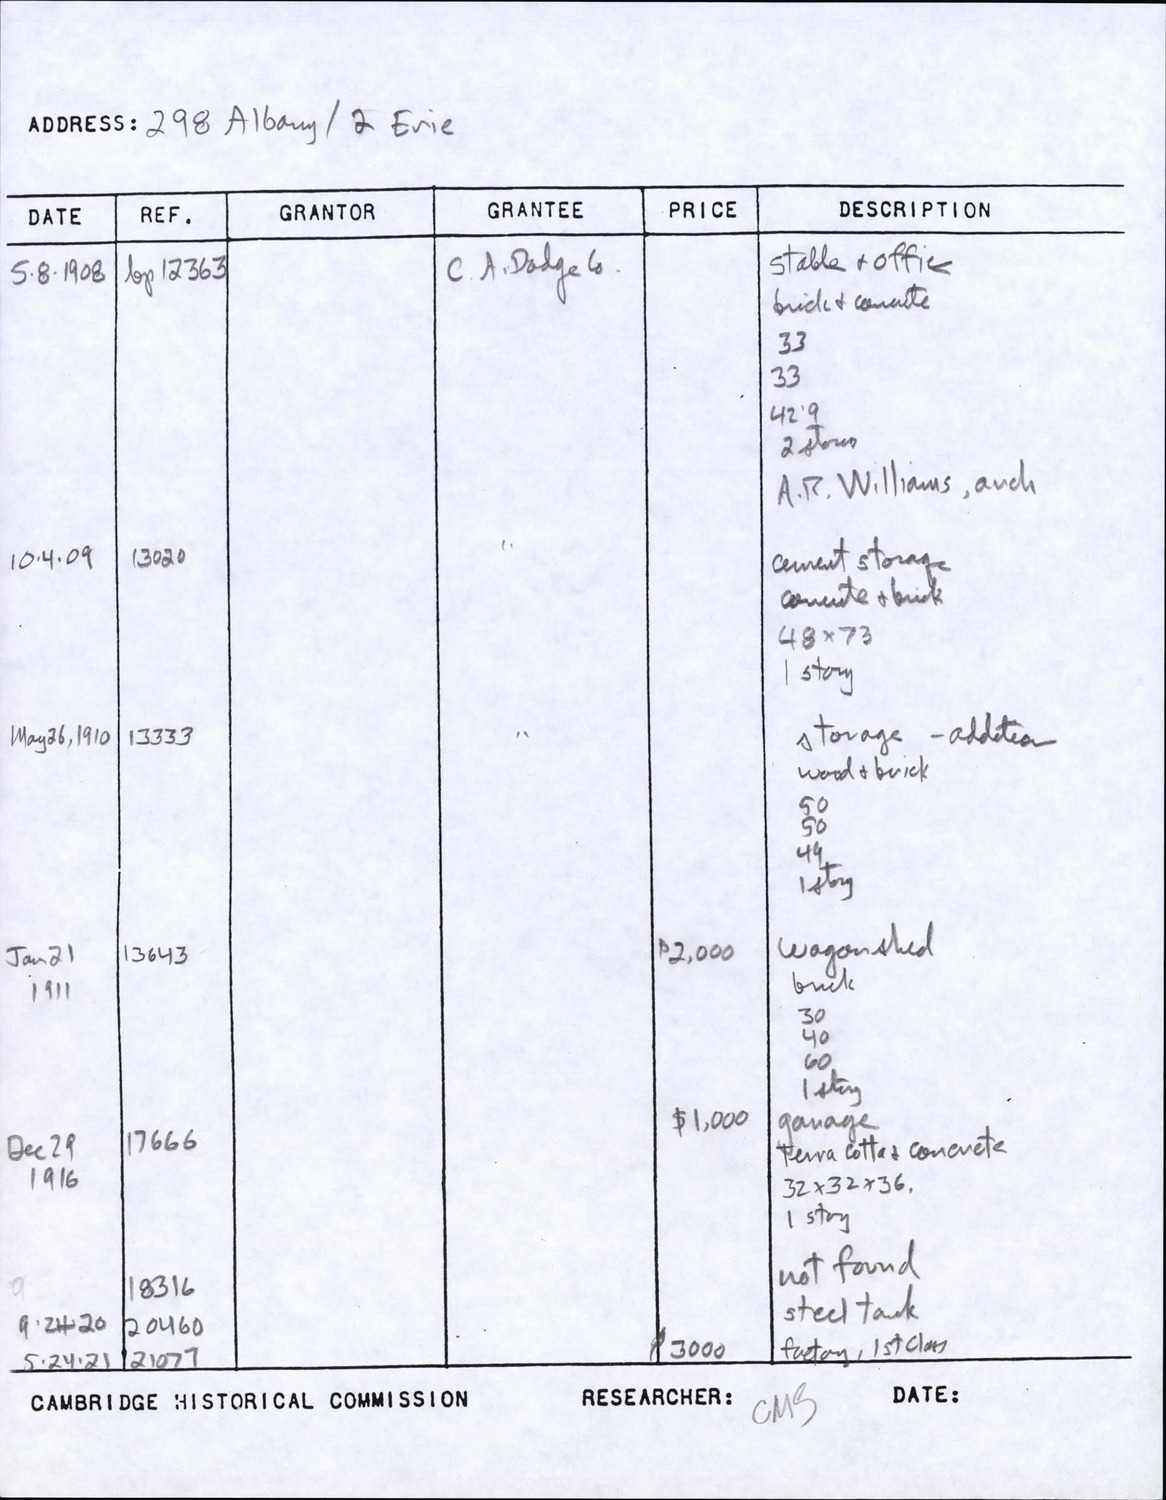 ADDRESS: 298 Albany / 2 Erie
DATE REF. GRANTOR GRANTEE PRICE DESCRIPTION
5·8·1908 bp 12363 C. A. Dodge Co. stable + office
brick + concrete
33
33
42'9
2 stories
A.R. Williams, arch
10·4·09 13020 " cement storage
concrete + brick
48 x 73
1 story
May 26, 1910 13333 " storage - addition
wood + brick
50
50
49
1 story
Jan 21 13643 $2,000 wagon shed
1911 brick
30
40
60
1 story
$1,000 garage
Dec 29 17666 terra cotta + concrete
1916 32x32x36.
1 story
9 18316 not found
9·24·20 20460 steel tank
5·24·21 21077 $3000 factory, 1st Class
CAMBRIDGE HISTORICAL COMMISSION RESEARCHER: CMS DATE: